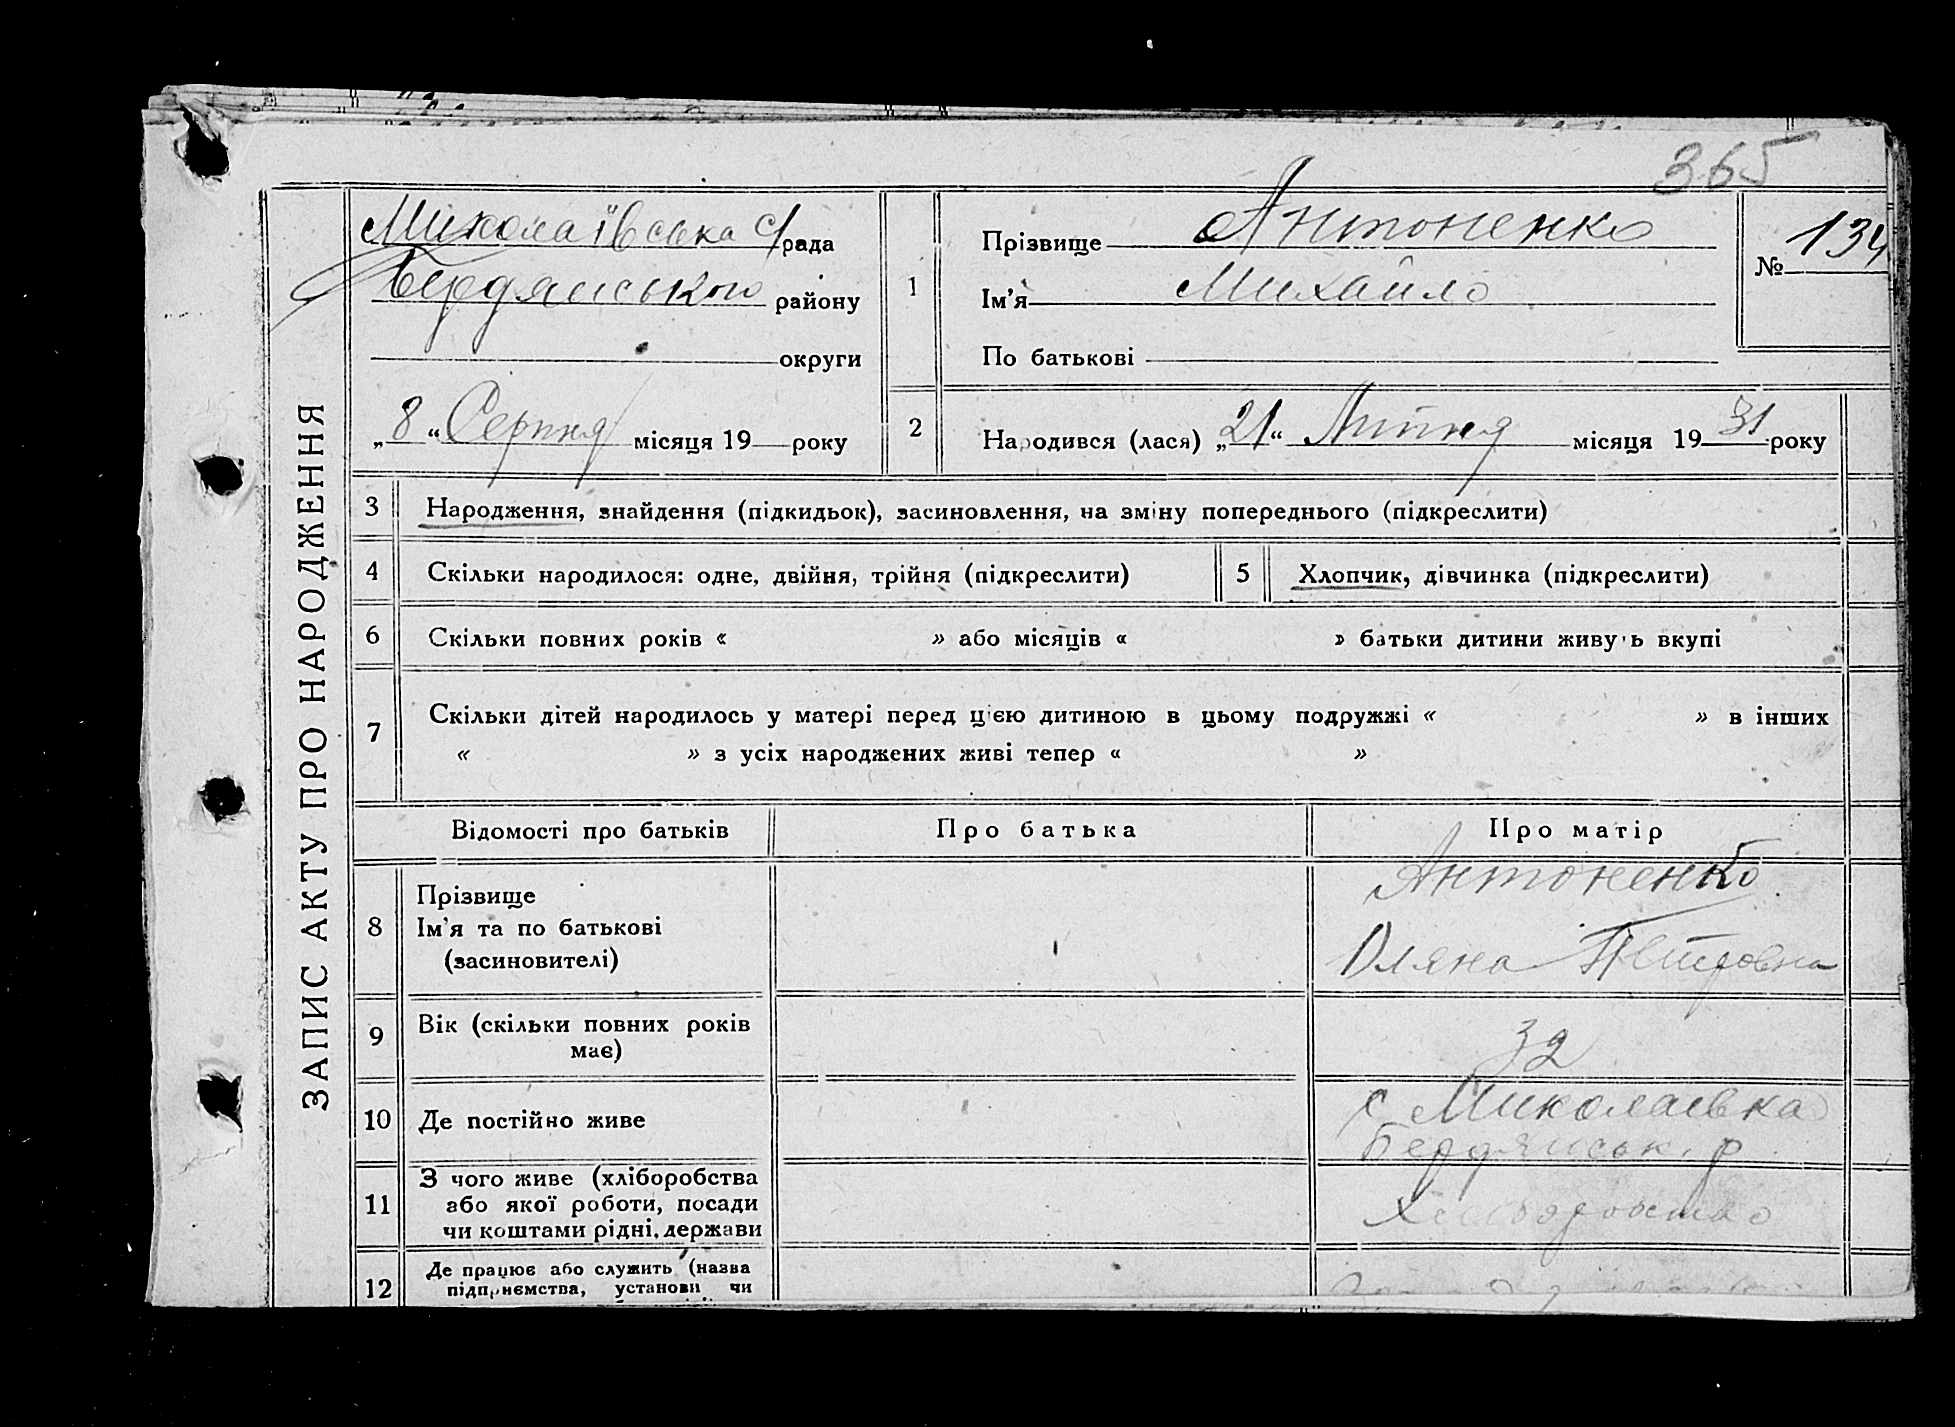 365
ЗАПИС АКТУ ПРО НАРОДЖЕННЯ
Миколаївська с/рада
Бердянського району
округи
„8“ Серпня місяця 19 року
1
Прізвище Антоненко
Ім'я Михайло
По батькові
№ 134
2
Народився (лася) „21“ Липня місяця 1931 року
3 Народження, знайдення (підкидьок), засиновлення, на зміну попереднього (підкреслити)
4 Скільки народилося: одне, двійня, трійня (підкреслити) 5 Хлопчик, дівчинка (підкреслити)
6 Скільки повних років « » або місяців « » батьки дитини живуть вкупі
7 Скільки дітей народилось у матері перед цією дитиною в цьому подружжі « » в інших
« » з усіх народжених живі тепер « »
Відомості про батьків Про батька Про матір
8 Прізвище
Ім'я та по батькові
(засиновителі)
Антоненко
Оляна Петровна
9 Вік (скільки повних років
має)
32
10 Де постійно живе
с Миколаївка
Бердянськ. р
11 З чого живе (хліборобства
або якої роботи, посади
чи коштами рідні, держави
Хліборобство
12 Де працює або служить (назва
підприємства, установи чи